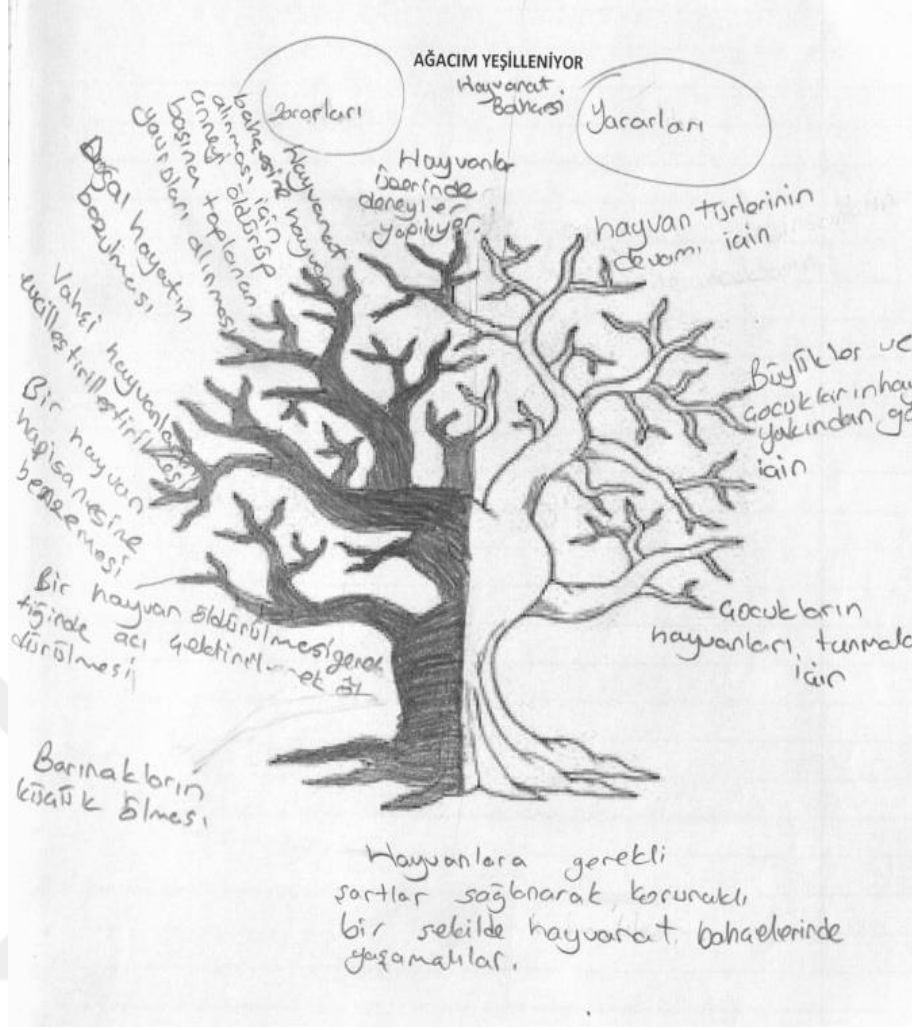 AĞACIM YEŞİLLENİYOR
Hayvanat
Bahçesi
Zararları
Yararları
Hayvanlar
üzerinde
deneyler
yapılıyor
Hayvanat
bahçesine hayvan
alınması için
anneyi öldürüp
başına toplanan
yavruları alınması
Doğal hayatın
bozulması
Vahşi hayvanların
Bir hayvan
hapisanesine
benzemesi
Bir hayvan öldürülmesi gerek
tiğinde acı çektirilerek öl
dürülmesi
Barınakların
küçük olması
hayvan türlerinin
devamı için
Büyükler ve
çocukların hay
yakından gö
için
Çocukların
hayvanları tanımala
için
Hayvanlara gerekli
şartlar sağlanarak korunaklı
bir şekilde hayvanat bahçelerinde
yaşamalılar.